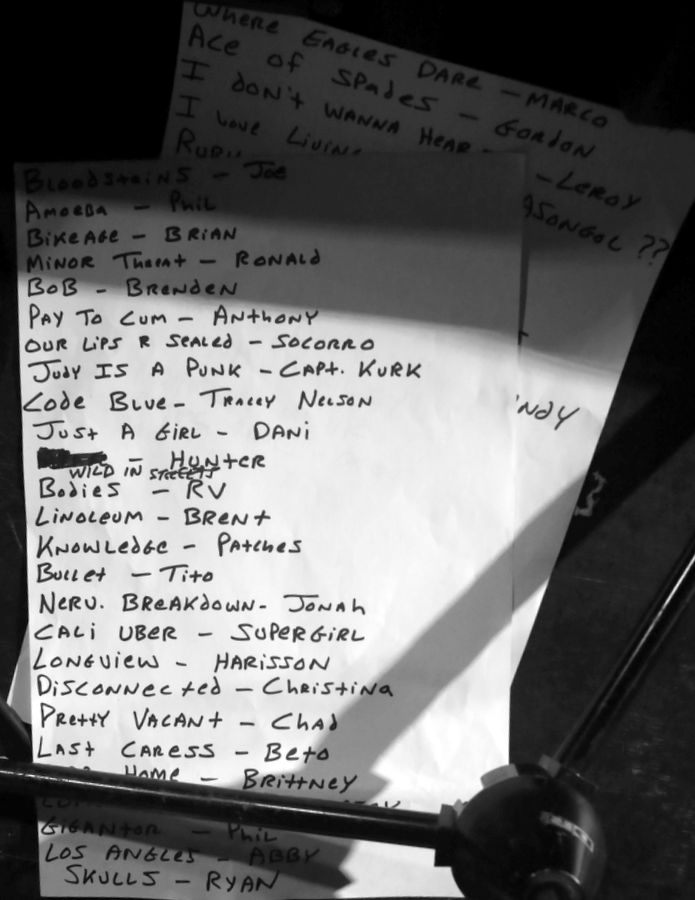 WHERE EAGLES DARE - MARCO
ACE OF SPADES - GORDON
I DON'T WANNA HEAR - LEROY
I LOVE LIVIN
RUBY
??
INDY
BLOODSTAINS - JOE
AMOEBA - PHIL
BIKEAGE - BRIAN
MINOR THREAT - RONALD
BOB - BRENDEN
PAY TO CUM - ANTHONY
OUR LIPS R SEALED - SOCORRO
JUDY IS A PUNK - CAPT. KURK
CODE BLUE - TRACEY NELSON
JUST A GIRL - DANI
- HUNTER
WILD IN STREETS
BODIES - RV
LINOLEUM - BRENT
KNOWLEDGE - PATCHES
BULLET - TITO
NERV. BREAKDOWN - JONAH
CALI UBER - SUPERGIRL
LONGVIEW - HARISSON
DISCONNECTED - CHRISTINA
PRETTY VACANT - CHAD
LAST CARESS - BETO
HOME - BRITTNEY
GIGANTOR - PHIL
LOS ANGLES - ABBY
SKULLS - RYAN